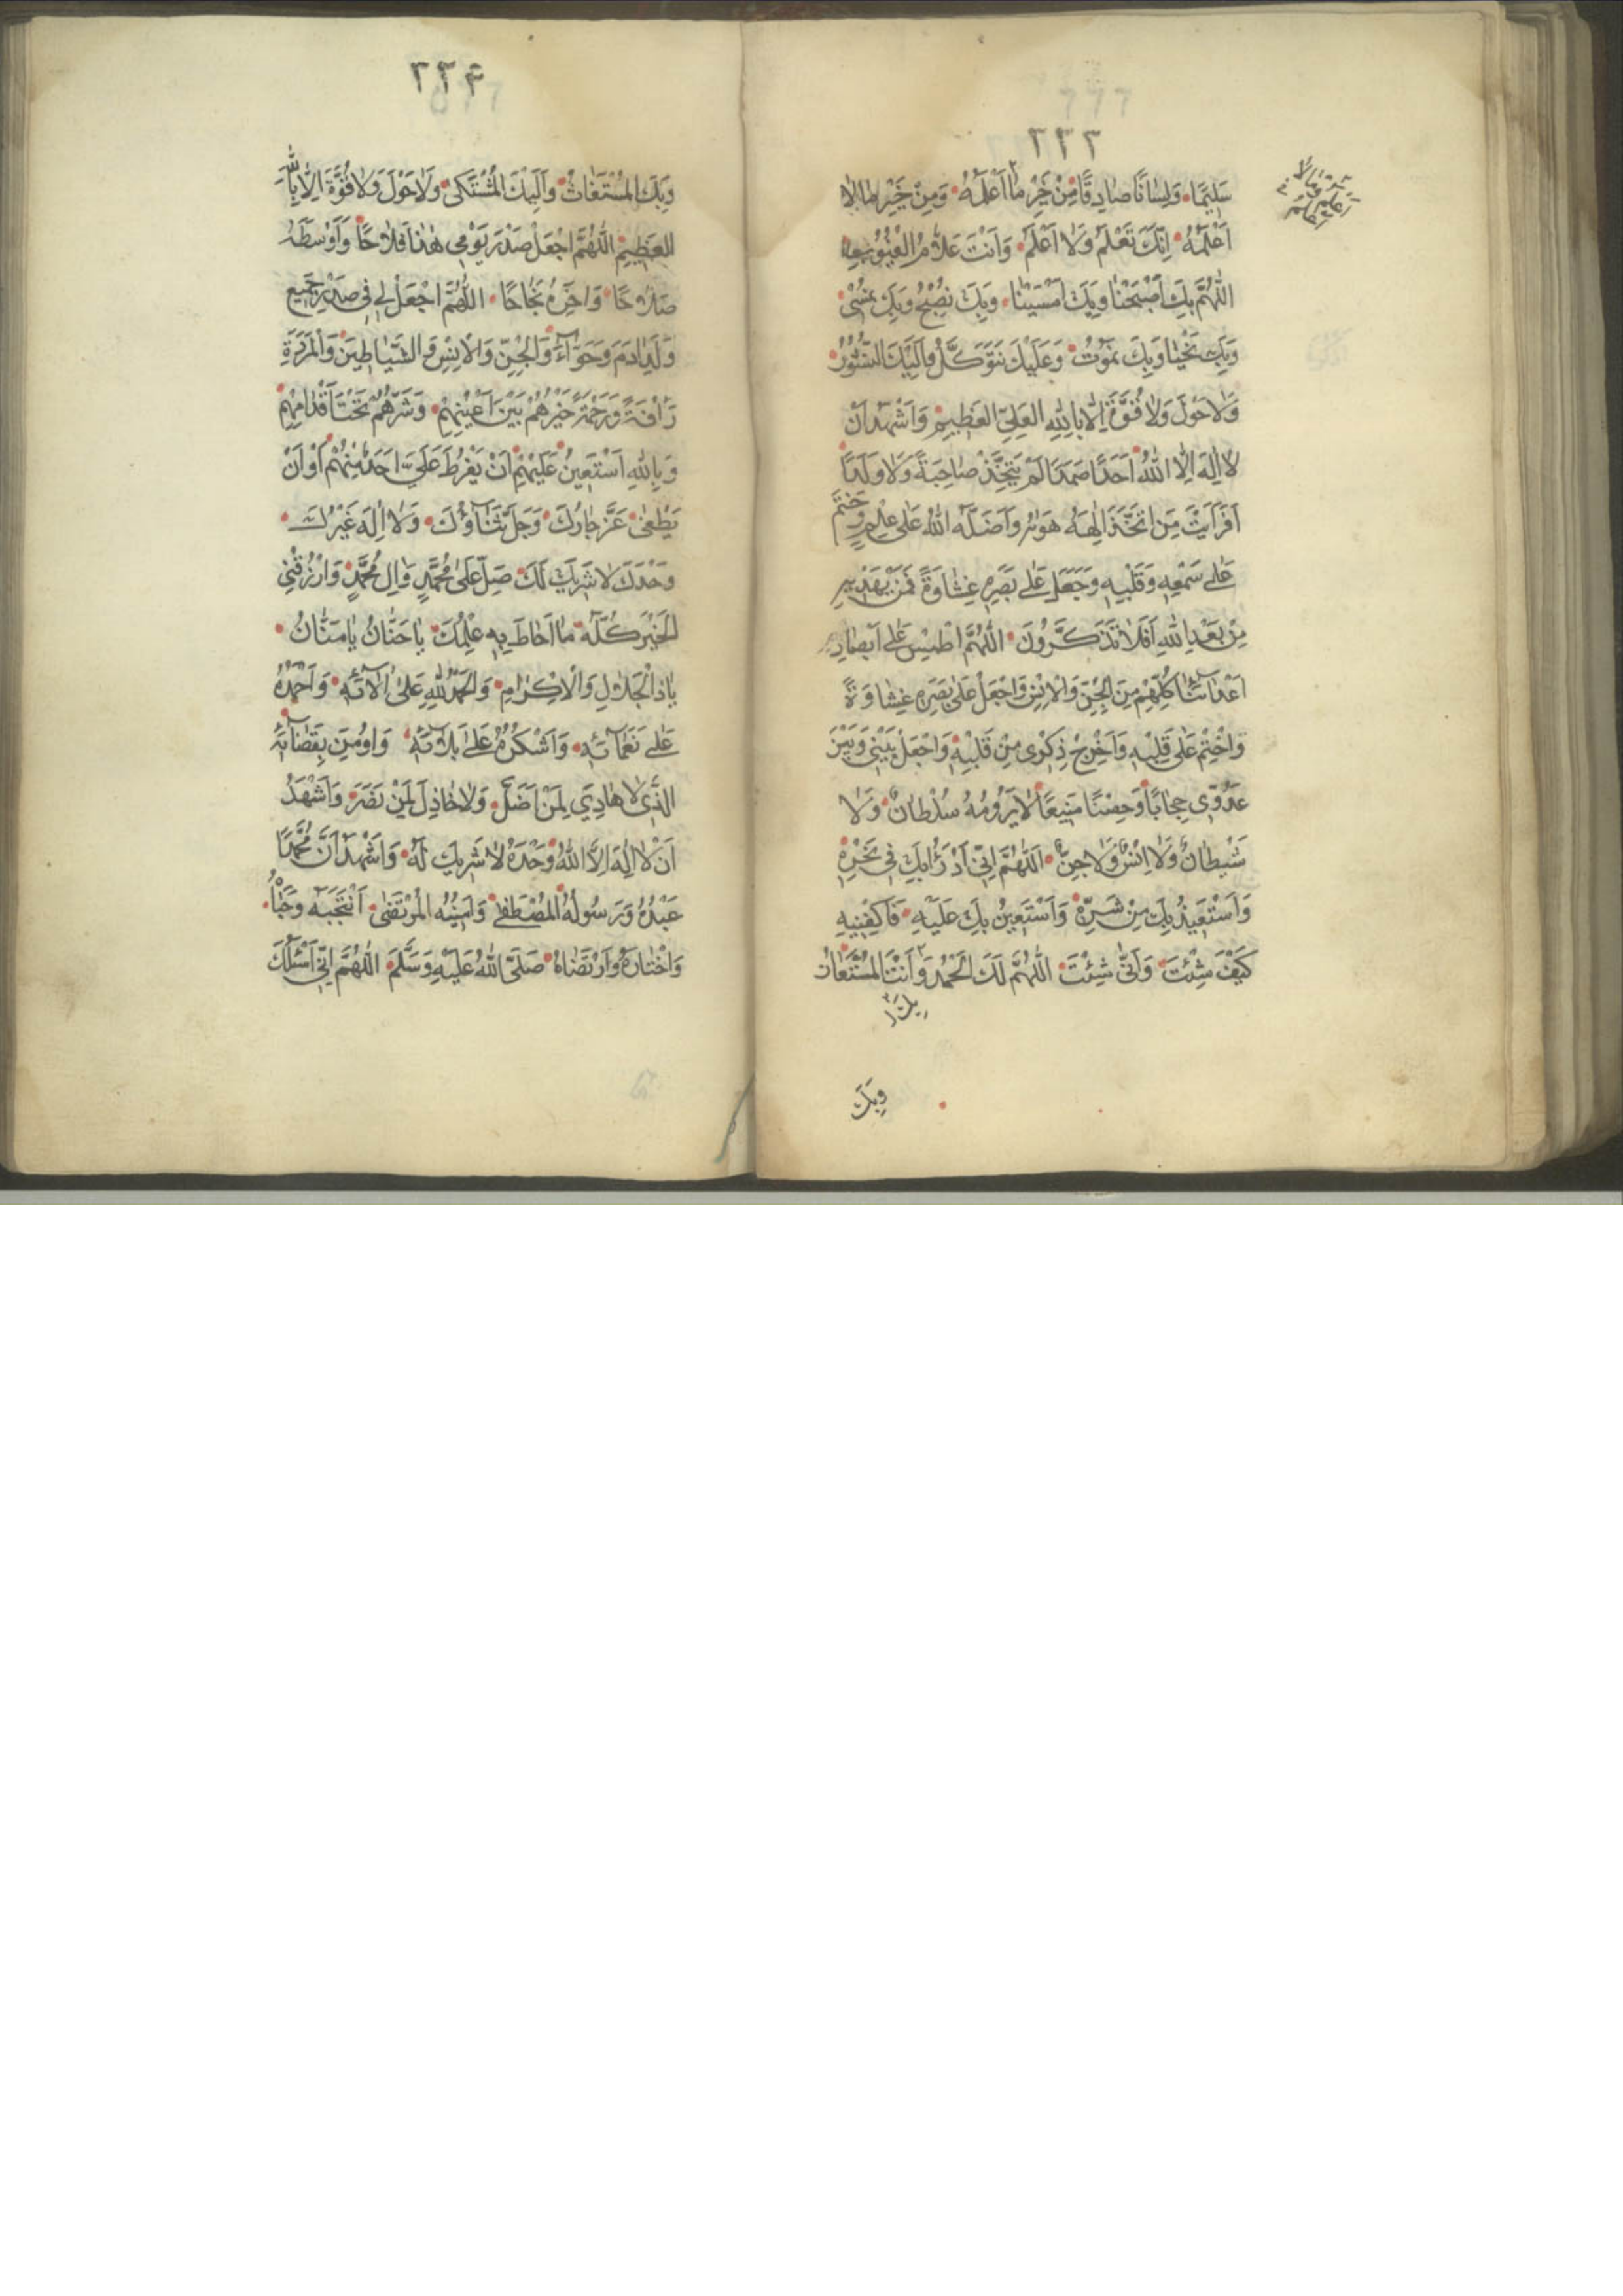 ٢٢٣
سَلِيمًا وَلِسَانًا صَادِقًا مِنْ خَيْرِ مَا اَعْلَمُهُ وَمِنْ خَيْرِ مَا لَا
اَعْلَمُهُ اِنَّكَ تَعْلَمُ وَلَا اَعْلَمُ وَاَنْتَ عَلَّامُ الْغُيُوبِ
اَللّٰهُمَّ بِكَ اَصْبَحْنَا وَبِكَ اَمْسَيْنَا وَبِكَ نُصْبِحُ وَبِكَ نُمْسِي
وَبِكَ نَحْيَا وَبِكَ نَمُوتُ وَعَلَيْكَ نَتَوَكَّلُ وَاِلَيْكَ النُّشُورُ
وَلَا حَوْلَ وَلَا قُوَّةَ اِلَّا بِاللّٰهِ الْعَلِيِّ الْعَظِيمِ وَاَشْهَدُ اَنْ
لَا اِلٰهَ اِلَّا اللّٰهُ اَحَدًا صَمَدًا لَمْ يَتَّخِذْ صَاحِبَةً وَلَا وَلَدًا
اَفَرَاَيْتَ مَنِ اتَّخَذَ اِلٰهَهُ هَوٰيهُ وَاَضَلَّهُ اللّٰهُ عَلٰى عِلْمٍ وَخَتَمَ
عَلٰى سَمْعِهِ وَقَلْبِهِ وَجَعَلَ عَلٰى بَصَرِهِ غِشَاوَةً فَمَنْ يَهْدِيهِ
مِنْ بَعْدِ اللّٰهِ اَفَلَا تَذَكَّرُونَ اَللّٰهُمَّ اطْمِسْ عَلٰى اَبْصَارِ
اَعْدَائِنَا كُلِّهِمْ مِنَ الْجِنِّ وَالْاِنْسِ وَاجْعَلْ عَلٰى بَصَرِهِ غِشَاوَةً
وَاخْتِمْ عَلٰى قَلْبِهِ وَاَخْرِجْ ذِكْرِي مِنْ قَلْبِهِ وَاجْعَلْ بَيْنِي وَبَيْنَ
عَدُوِّي حِجَابًا وَحِصْنًا مَنِيعًا لَا يَرُومُهُ سُلْطَانٌ وَلَا
شَيْطَانٌ وَلَا اِنْسٌ وَلَا جِنٌّ اَللّٰهُمَّ اِنِّي اَدْرَؤُ بِكَ فِي نَحْرِهِ
وَاَسْتَعِيذُ بِكَ مِنْ شَرِّهِ وَاَسْتَعِينُ بِكَ عَلَيْهِ فَاكْفِنِيهِ
كَيْفَ شِئْتَ وَاَنّٰى شِئْتَ اَللّٰهُمَّ لَكَ الْحَمْدُ وَاَنْتَ الْمُسْتَعَانُ
وَبِكَ
٢٢٤
وَبِكَ الْمُسْتَغَاثُ وَاِلَيْكَ الْمُشْتَكٰى وَلَا حَوْلَ وَلَا قُوَّةَ اِلَّا بِاللّٰهِ
الْعَظِيمِ اَللّٰهُمَّ اجْعَلْ صَدْرَ يَوْمِي هٰذَا فَلَاحًا وَاَوْسَطَهُ
صَلَاحًا وَاٰخِرَهُ نَجَاحًا اَللّٰهُمَّ اجْعَلْ لِي فِي صَدْرِ جَمِيعِ
وُلْدِ اٰدَمَ وَحَوَّاءَ وَالْجِنِّ وَالْاِنْسِ وَالشَّيَاطِينِ وَالْمَرَدَةِ
رَاْفَةً وَرَحْمَةً خَيْرُهُمْ بَيْنَ اَعْيُنِهِمْ وَشَرُّهُمْ تَحْتَ اَقْدَامِهِمْ
وَبِاللّٰهِ اَسْتَعِينُ عَلَيْهِمْ اَنْ يَفْرُطَ عَلَيَّ اَحَدٌ مِنْهُمْ اَوْ اَنْ
يَطْغٰى عَزَّ جَارُكَ وَجَلَّ ثَنَاؤُكَ وَلَا اِلٰهَ غَيْرُكَ
وَحْدَكَ لَا شَرِيكَ لَكَ صَلِّ عَلٰى مُحَمَّدٍ وَاٰلِ مُحَمَّدٍ وَارْزُقْنِي
الْخَيْرَ كُلَّهُ مَا اَحَاطَ بِهِ عِلْمُكَ يَا حَنَّانُ يَا مَنَّانُ
يَا ذَا الْجَلَالِ وَالْاِكْرَامِ وَالْحَمْدُ لِلّٰهِ عَلٰى اٰلَائِهِ وَاَحْمَدُهُ
عَلٰى نَعْمَائِهِ وَاَشْكُرُهُ عَلٰى بَلَائِهِ وَاُومِنُ بِقَضَائِهِ
الَّذِي لَا هَادِيَ لِمَنْ اَضَلَّ وَلَا خَاذِلَ لِمَنْ نَصَرَ وَاَشْهَدُ
اَنْ لَا اِلٰهَ اِلَّا اللّٰهُ وَحْدَهُ لَا شَرِيكَ لَهُ وَاَشْهَدُ اَنَّ مُحَمَّدًا
عَبْدُهُ وَرَسُولُهُ الْمُصْطَفٰى وَاَمِينُهُ الْمُرْتَضٰى اَنْتَجَبَهُ وَحَبَاهُ
وَاخْتَارَهُ وَارْتَضَاهُ صَلَّى اللّٰهُ عَلَيْهِ وَسَلَّمَ اَللّٰهُمَّ اِنِّي اَسْئَلُكَ